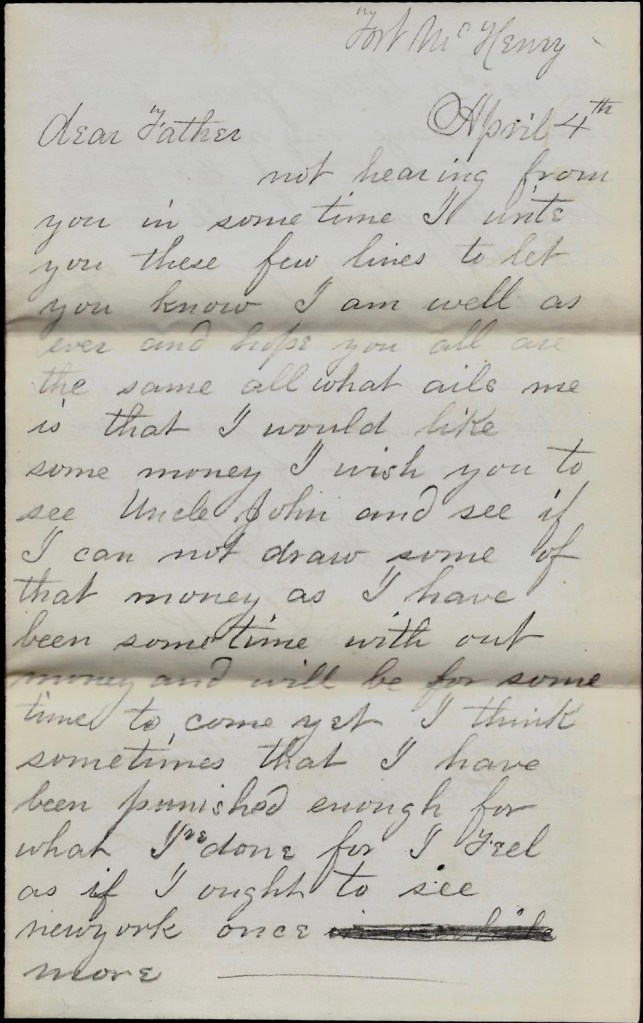 Fort McHenry
April 4th
dear Father
not hearing from
you in some time I write
you these few lines to let
you know I am well as
ever and hope you all are
the same all what ails me
is that I would like
some money I wish you to
see Uncle John and see if
I can not draw some of
that money as I have
been some time with out
money and will be for some
time to come yet I think
sometimes that I have
been punished enough for
what I've done for I Feel
as if I ought to see
newyork once in a while
more